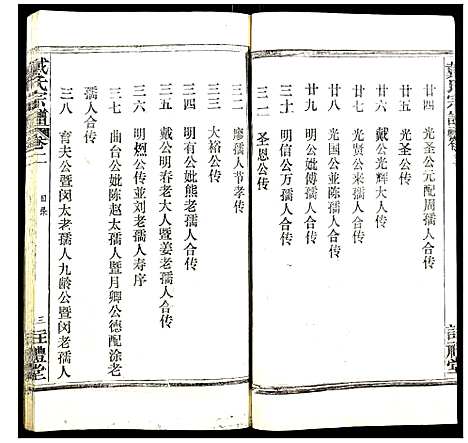 廿四 光圣公元配周孺人合传
廿五 光圣公传
廿六 戴公光辉大人传
廿七 光贤公来孺人合传
廿八 光国公並陈孺人合传
廿九 明光公妣傅孺人合传
三十 明信公万孺人合传
三一 圣恩公传
三二 廖孺人节孝传
三三 大裕公传
三四 明有公妣熊老孺人合传
三五 戴公明春老大人暨姜老孺人合传
三六 明燃公传並刘老孺人寿序
三七 曲台公妣陈赵太孺人暨月卿公德配涂老
孺人合传
三八 育夫公暨闵太老孺人九龄公暨闵老孺人
戴氏宗谱 卷二
目录
三
注禮堂